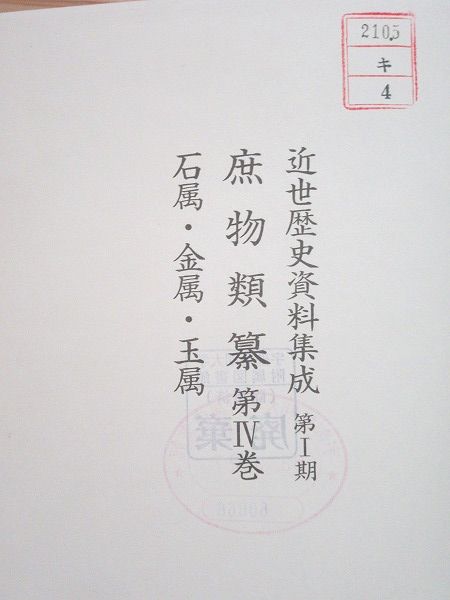 近世歴史資料集成 第Ⅰ期
庶物類纂 第Ⅳ巻
石属・金属・玉属
210.5
キ
4
廃棄